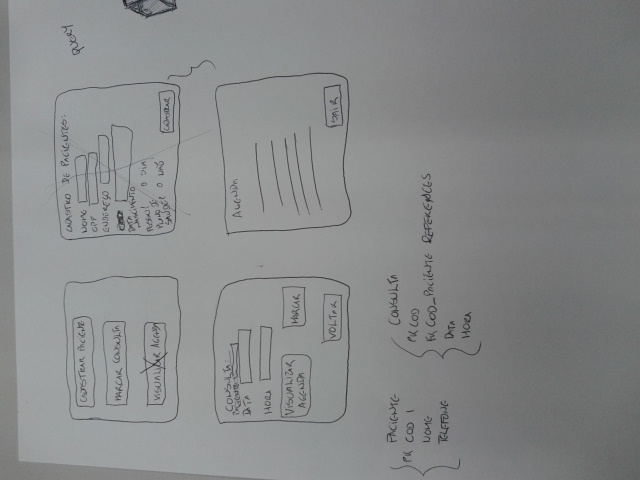 CADASTRAR PACIENTE
MARCAR CONSULTA
VISUALIZAR AGENDA
CADASTRO DE PACIENTES:
NOME
CPF
ENDEREÇO
DATA
NASCIMENTO
POSSUI O SIM
PLANO DE
SAÚDE? O NÃO
CADASTRAR
QUERY
CONSULTA:
PACIENTE
DATA
HORA
VISUALIZAR
AGENDA
MARCAR
VOLTAR
AGENDA
SAIR
PACIENTE
PK COD
NOME
TELEFONE
CONSULTA
PK COD
FK COD_PACIENTE REFERENCES
DATA
HORA